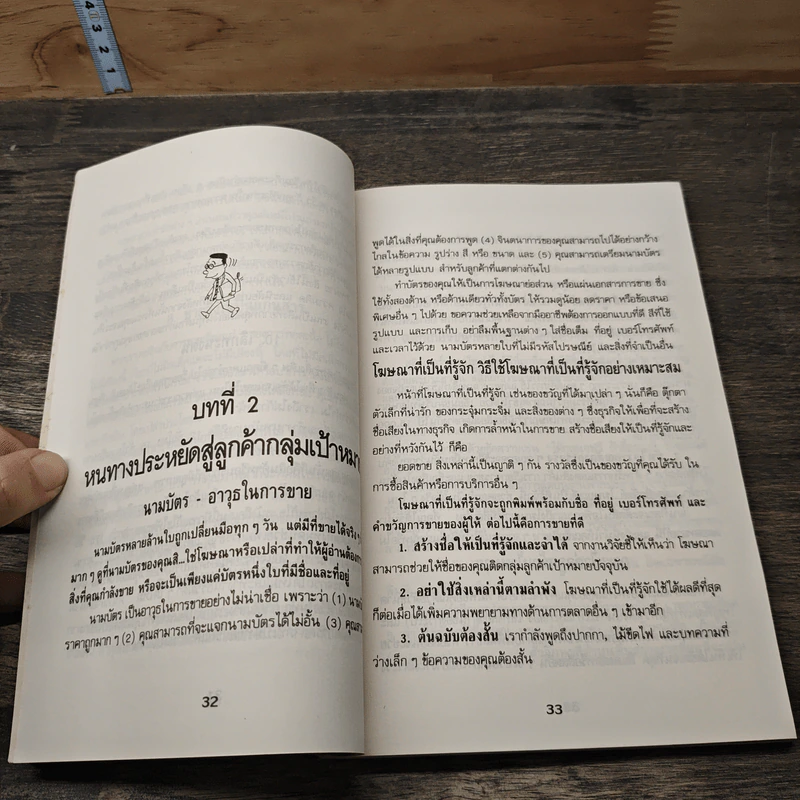 4
3
2
1
บทที่ 2
หนทางประหยัดสู่ลูกค้ากลุ่มเป้าหมา
นามบัตร - อาวุธในการขาย
นามบัตรหลายล้านใบถูกเปลี่ยนมือทุก ๆ วัน แต่มีที่ขายได้จริง ๆ
มาก ๆ ดูที่นามบัตรของคุณสิ...ใช้โฆษณาหรือเปล่าที่ทำให้ผู้อ่านต้องการ
สิ่งที่คุณกำลังขาย หรือจะเป็นเพียงแค่บัตรหนึ่งใบที่มีชื่อและที่อยู่
นามบัตร เป็นอาวุธในการขายอย่างไม่น่าเชื่อ เพราะว่า (1) นามบั
ราคาถูกมาก ๆ (2) คุณสามารถที่จะแจกนามบัตรได้ไม่อั้น (3) คุณสา
32
พูดได้ในสิ่งที่คุณต้องการพูด (4) จินตนาการของคุณสามารถไปได้อย่างกว้าง
ไกลในข้อความ รูปร่าง สี หรือ ขนาด และ (5) คุณสามารถเตรียมนามบัตร
ได้หลายรูปแบบ สำหรับลูกค้าที่แตกต่างกันไป
ทำบัตรของคุณให้เป็นการโฆษณาย่อส่วน หรือแผ่นเอกสารการขาย ซึ่ง
ใช้ทั้งสองด้าน หรือด้านเดียวทั่วทั้งบัตร ให้รวมดูน้อย ลดราคา หรือข้อเสนอ
พิเศษอื่น ๆ ไปด้วย ขอความช่วยเหลือจากมืออาชีพต้องการออกแบบที่ดี สีที่ใช้
รูปแบบ และการเก็บ อย่าลืมพื้นฐานต่าง ๆ ใส่ชื่อเต็ม ที่อยู่ เบอร์โทรศัพท์
และเวลาไว้ด้วย นามบัตรหลายใบที่ไม่มีรหัสไปรษณีย์ และสิ่งที่จำเป็นอื่น
โฆษณาที่เป็นที่รู้จัก วิธีใช้โฆษณาที่เป็นที่รู้จักอย่างเหมาะสม
หน้าที่โฆษณาที่เป็นที่รู้จัก เช่นของขวัญที่ได้มาเปล่า ๆ นั้นก็คือ ตุ๊กตา
ตัวเล็กที่น่ารัก ของกระจุ๋มกระจิ๋ม และสิ่งของต่าง ๆ ซึ่งธุรกิจให้เพื่อที่จะสร้าง
ชื่อเสียงในทางธุรกิจ เกิดการล้ำหน้าในการขาย สร้างชื่อเสียงให้เป็นที่รู้จักและ
อย่างที่หวังกันไว้ ก็คือ
ยอดขาย สิ่งเหล่านี้เป็นญาติ ๆ กัน รางวัลซึ่งเป็นของขวัญที่คุณได้รับ ใน
การซื้อสินค้าหรือการบริการอื่น ๆ
โฆษณาที่เป็นที่รู้จักจะถูกพิมพ์พร้อมกับชื่อ ที่อยู่ เบอร์โทรศัพท์ และ
คำขวัญการขายของผู้ให้ ต่อไปนี้คือการขายที่ดี
1. สร้างชื่อให้เป็นที่รู้จักและจำได้ จากงานวิจัยชี้ให้เห็นว่า โฆษณา
สามารถช่วยให้ชื่อของคุณติดกลุ่มลูกค้าเป้าหมายปัจจุบัน
2. อย่าใช้สิ่งเหล่านี้ตามลำพัง โฆษณาที่เป็นที่รู้จักใช้ได้ผลดีที่สุด
ก็ต่อเมื่อได้เพิ่มความพยายามทางด้านการตลาดอื่น ๆ เข้ามาอีก
3. ต้นฉบับต้องสั้น เรากำลังพูดถึงปากกา, ไม้ขีดไฟ และบทความที่
ว่างเล็ก ๆ ข้อความของคุณต้องสั้น
33